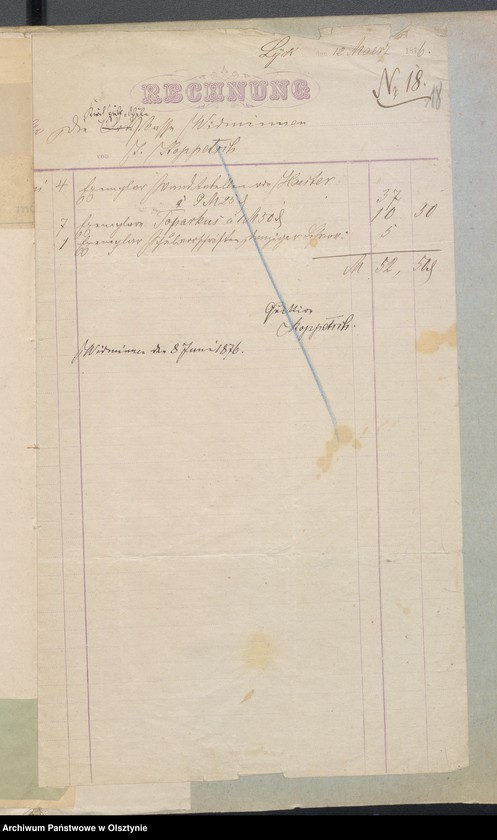 Lyck den 12 März 1876.
No 18.
18
RECHNUNG
Die Schulkasse Widminnen
von J. Koppetsch
4 Exemplar Wandtabellen von Haester
à 9 M 25 37
7 Exemplar à 1 M 50 10 50
1 Exemplar Schulvorschriften 5
M. 52, 50
Koppetsch.
Widminnen den 8 Juni 1876.
Archiwum Państwowe w Olsztynie